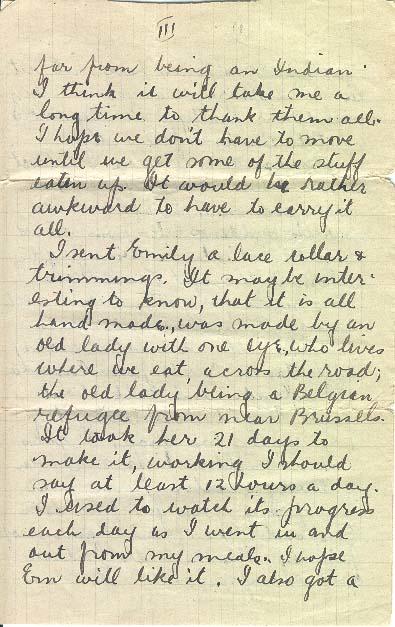 III
far from being an Indian.
I think it will take me a
long time to thank them all.
I hope we don't have to move
until we get some of the stuff
eaten up. It would be rather
awkward to have to carry it
all.
I sent Emily a lace collar &
trimmings. It may be inter-
esting to know, that it is all
hand made, was made by an
old lady with one eye, who lives
where we eat, across the road;
the old lady being a Belgian
refugee from near Brussels.
It took her 21 days to
make it, working I should
say at least 12 hours a day.
I used to watch its progress
each day as I went in and
out from my meals. I hope
Em will like it. I also got a